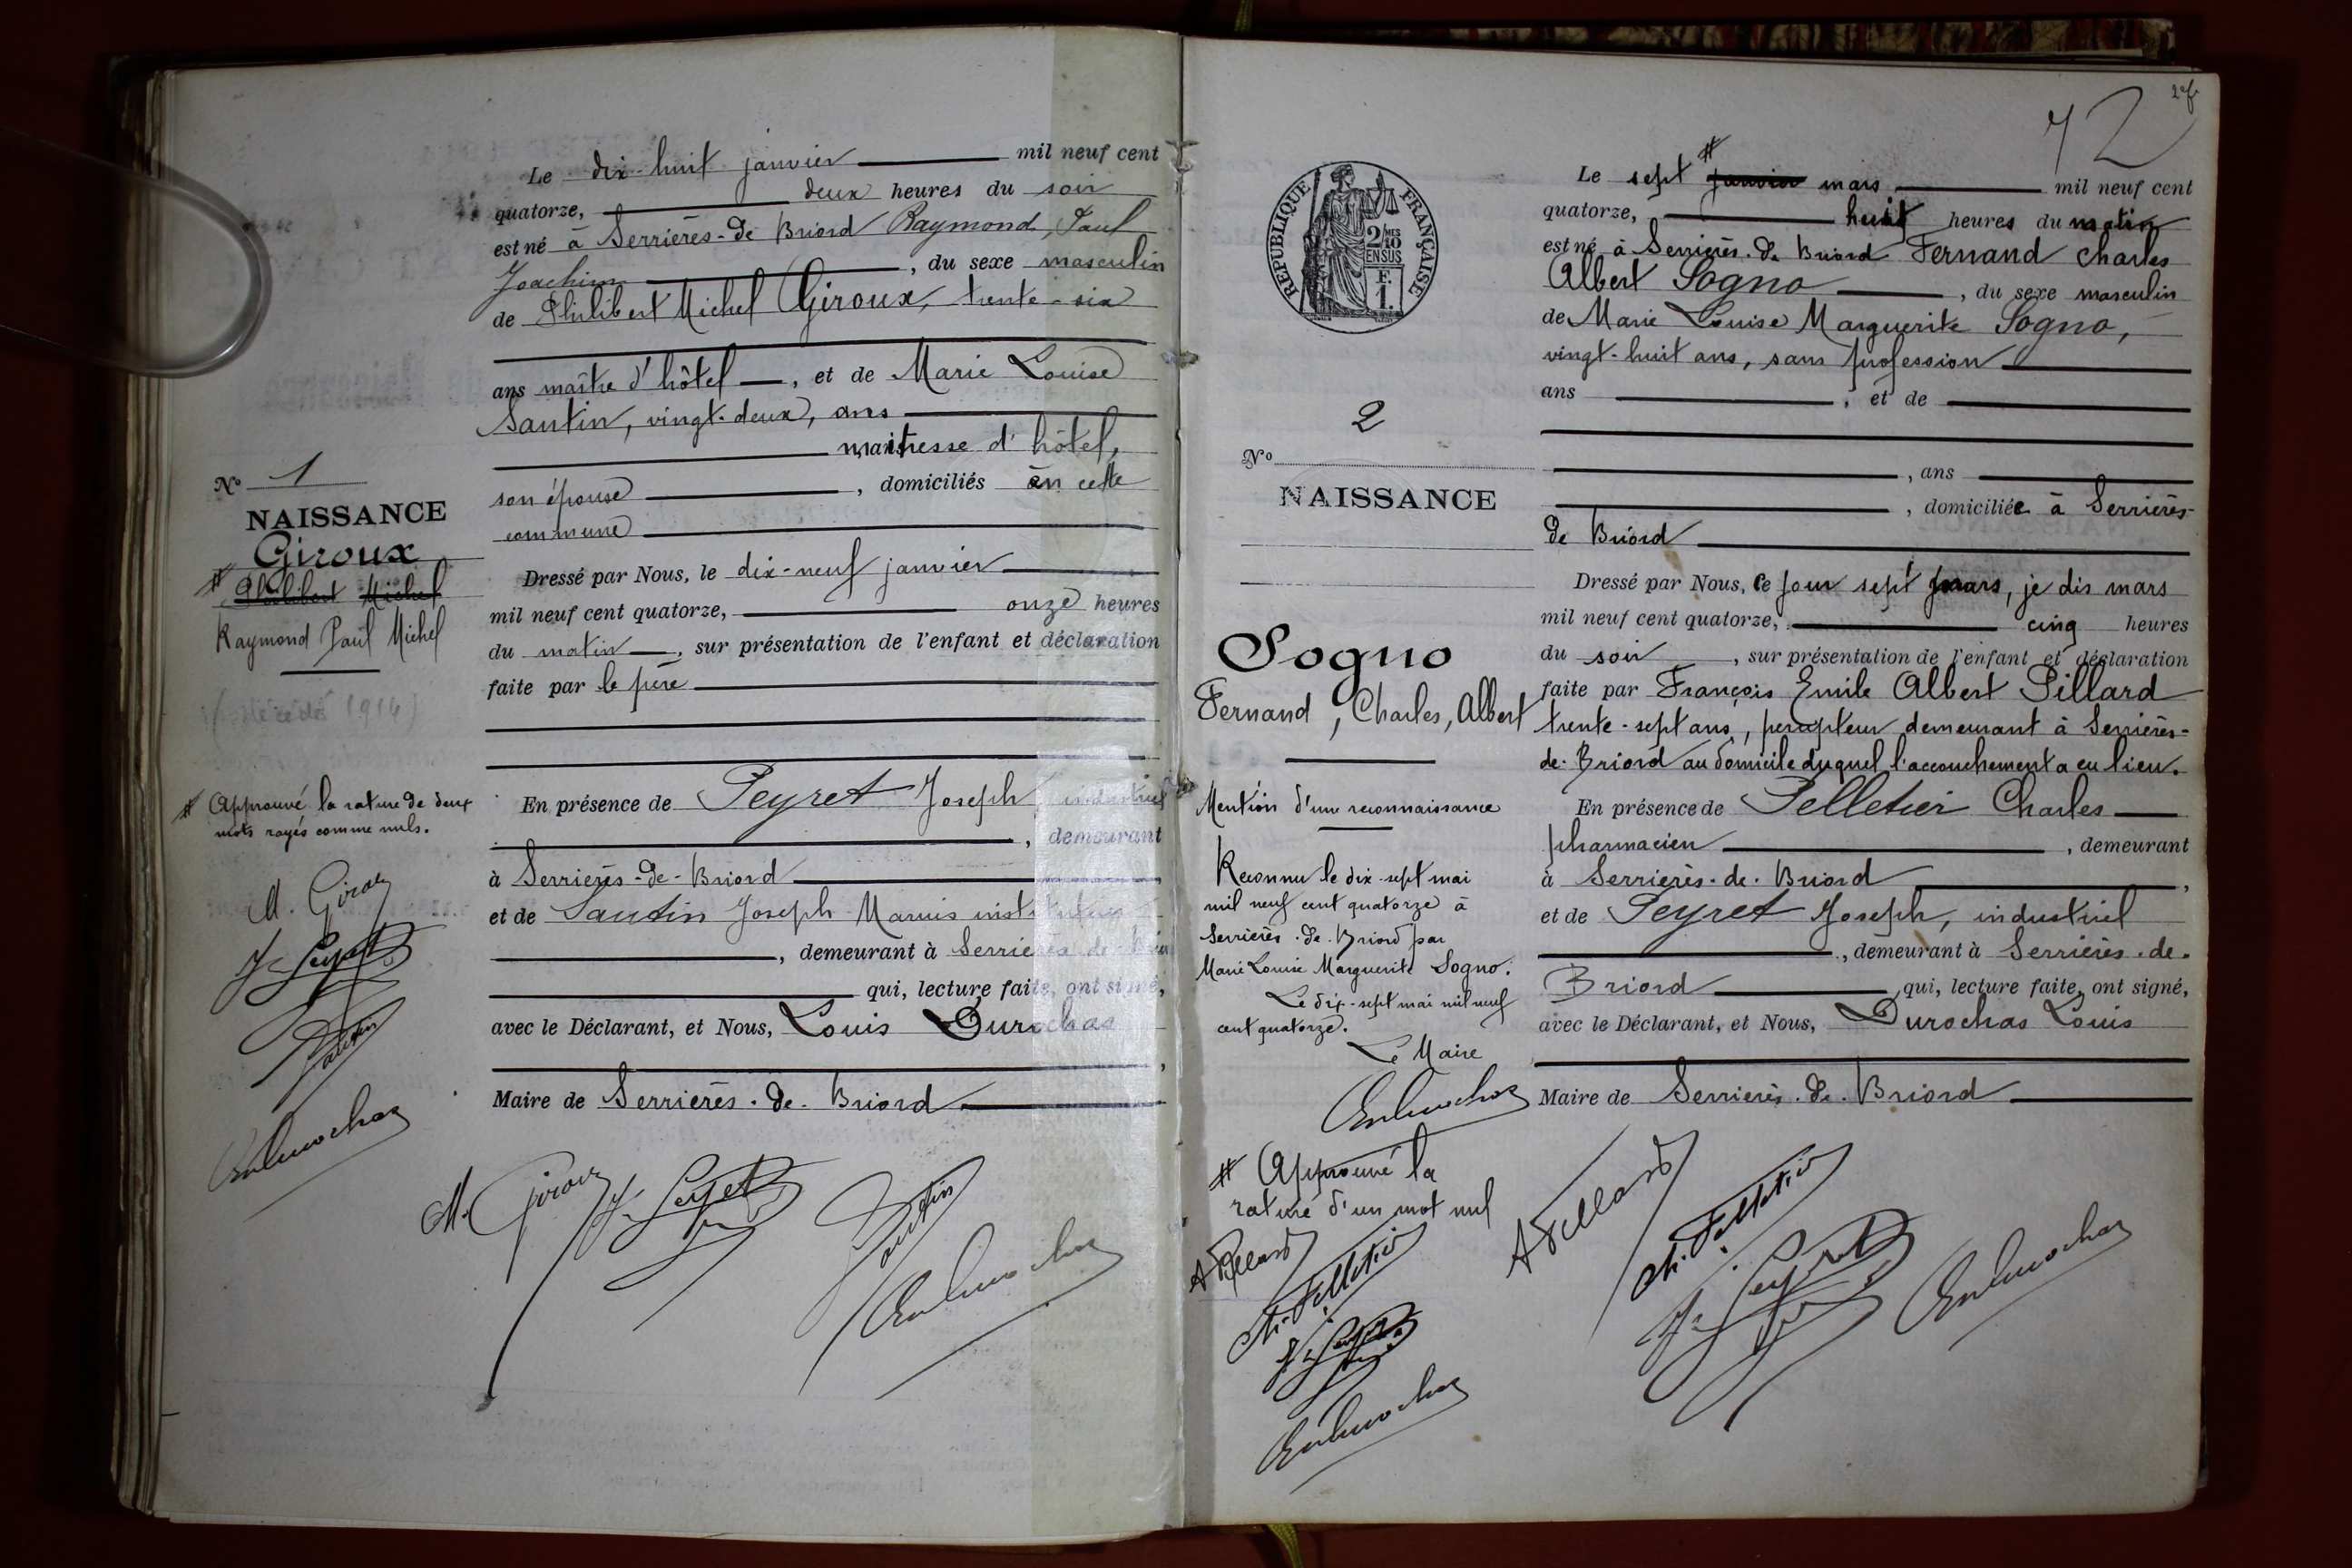 Le dix-huit janvier mil neuf cent
quatorze, deux heures du soir
est né à Serrières-de Briord Raymond, Paul
Joachim, du sexe masculin
de Philibert Michel Giroux, trente-six
ans maître d'hôtel, et de Marie Louise
Santin, vingt-deux, ans
maitresse d'hôtel,
son épouse, domiciliés en cette
commune
Dressé par Nous, le dix-neuf janvier
mil neuf cent quatorze, onze heures
du matin, sur présentation de l'enfant et déclaration
faite par le père
En présence de Peyret Joseph, industriel
, demeurant
à Serrières-de-Briord
et de Santin Joseph Marius instituteur
, demeurant à Serrières de
qui, lecture faite, ont signé,
avec le Déclarant, et Nous, Louis Durochas
,
Maire de Serrières-de-Briord
M. Giroux
Santin
No 1
NAISSANCE
Giroux
# Philibert Michel
Raymond Paul Michel
(décédé 1914)
# Approuvé la rature de deux
mots rayés comme nuls.
M. Giroux
J. Peyret
Santin
72
Le sept # janvier mars mil neuf cent
quatorze, huit heures du matin
est né à Serrières-de Briord Fernand Charles
Albert Sogno, du sexe masculin
de Marie Louise Marguerite Sogno,
vingt-huit ans, sans profession
ans, et de
, ans
, domiciliée à Serrières-
de Briord
Dressé par Nous, ce jour sept mars, je dis mars
mil neuf cent quatorze, cinq heures
du soir, sur présentation de l'enfant et déclaration
faite par François Emile Albert Pillard
trente-sept ans, percepteur demeurant à Serrières-
de-Briord au domicile duquel l'accouchement a eu lieu.
En présence de Pelletier Charles
pharmacien, demeurant
à Serrières-de-Briord,
et de Peyret Joseph, industriel
, demeurant à Serrières-de-
Briord qui, lecture faite, ont signé,
avec le Déclarant, et Nous, Durochas Louis
Maire de Serrières-de-Briord
A Pillard
Ch. Pelletier
RÉPUBLIQUE FRANÇAISE
2/10 MES
EN SUS
F.
1.
2
No
NAISSANCE
Sogno
Fernand, Charles, Albert
Mention d'une reconnaissance
Reconnu le dix-sept mai
mil neuf cent quatorze à
Serrières-de-Briord par
Marie Louise Marguerite Sogno.
Le dix-sept mai mil neuf
cent quatorze.
Le Maire
# Approuvé la
rature d'un mot nul
A Pillard
Ch. Pelletier